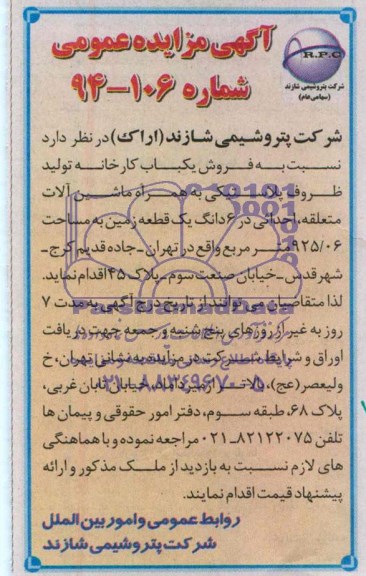 آگهی مزایده عمومی
شماره ۱۰۶-۹۴
R.P.C
شرکت پتروشیمی شازند
(سهامی عام)
شرکت پتروشیمی شازند (اراک) در نظر دارد
نسبت به فروش یکباب کارخانه تولید
ظروف پلاستیکی به همراه ماشین آلات
متعلقه، احداثی در ۶دانگ یک قطعه زمین به مساحت
۹۲۵/۰۶ متر مربع واقع در تهران - جاده قدیم کرج -
شهر قدس - خیابان صنعت سوم - پلاک ۴۵ اقدام نماید.
لذا متقاضیان می توانند از تاریخ درج آگهی به مدت ۷
روز به غیر از روزهای پنج شنبه و جمعه جهت دریافت
اوراق و شرایط شرکت در مزایده به نشانی تهران، خ
ولیعصر (عج)، بالاتر از میرداماد، خیابان تابان غربی،
پلاک ۶۸، طبقه سوم، دفتر امور حقوقی و پیمان ها
تلفن ۸۲۱۲۲۰۷۵-۰۲۱ مراجعه نموده و با هماهنگی
های لازم نسبت به بازدید از ملک مذکور و ارائه
پیشنهاد قیمت اقدام نمایند.
روابط عمومی و امور بین الملل
شرکت پتروشیمی شازند
ParsNamadData
۰۲۱-۸۸۳۴۹۶۷۰-۵